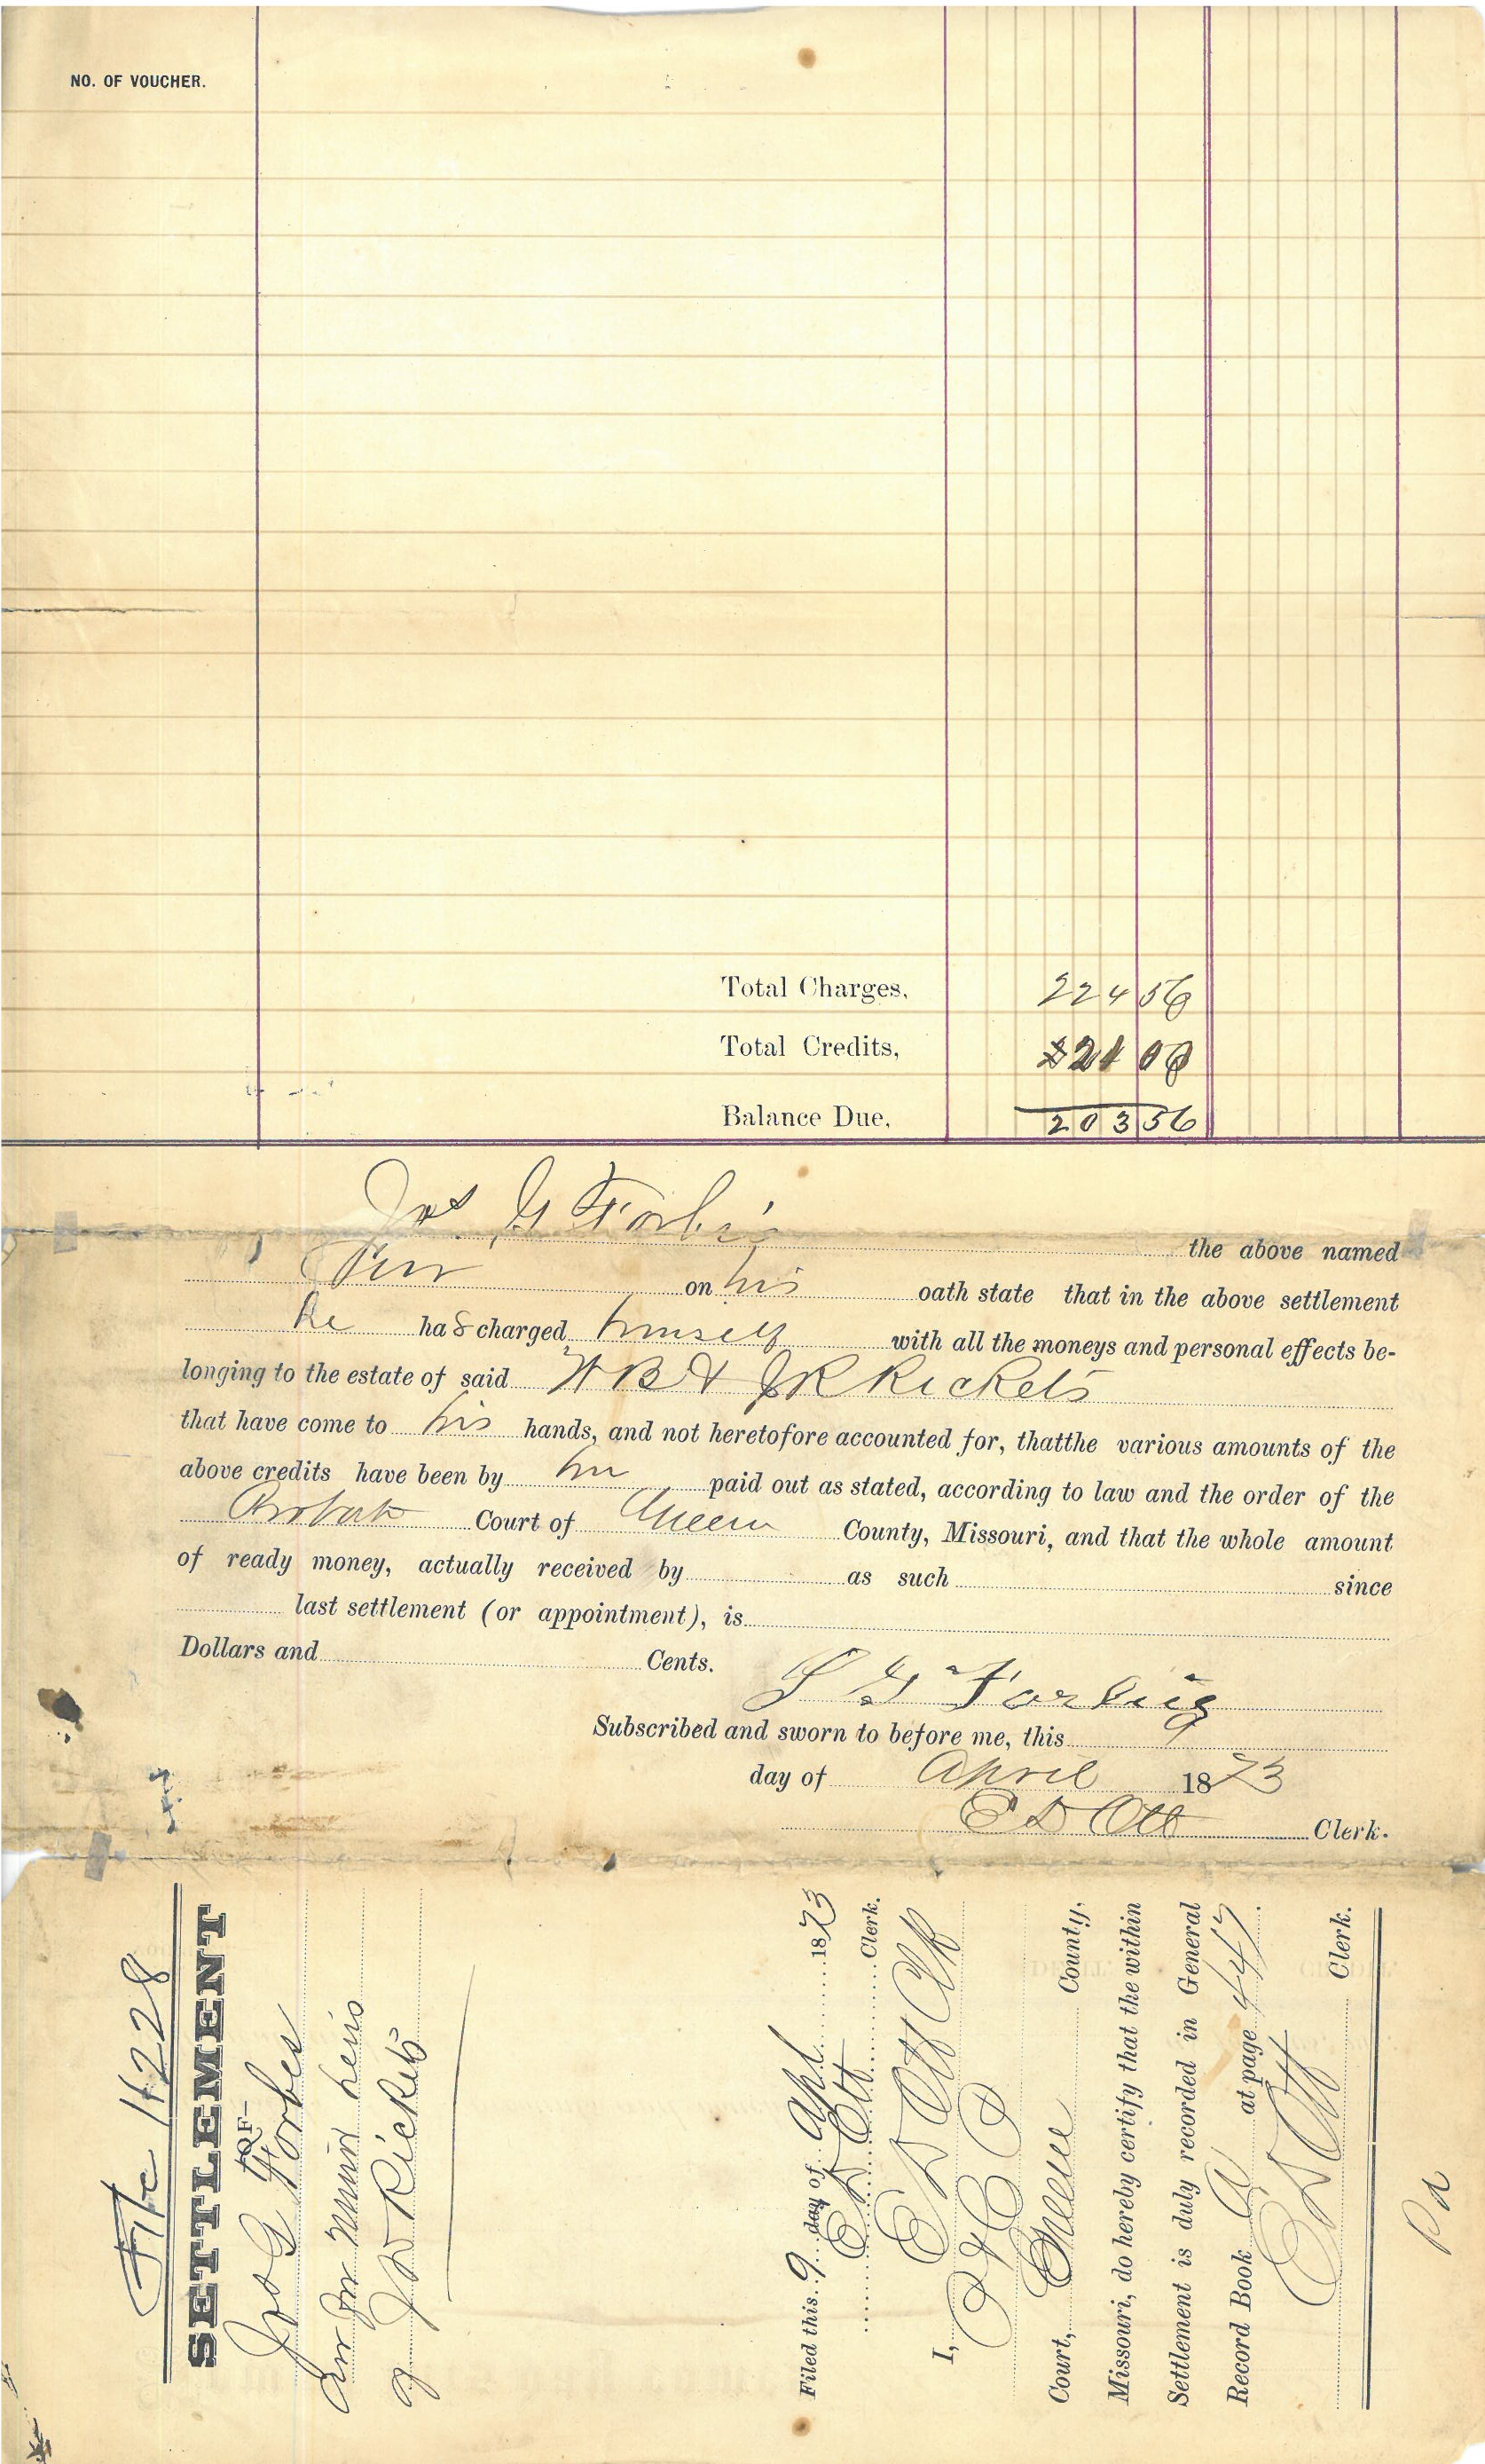 NO. OF VOUCHER.
Total Charges, 224 56
Total Credits, 21 00
Balance Due, 203 56
Jos G Forbis
the above named
Cur on his oath state that in the above settlement
he has charged himself with all the moneys and personal effects be-
longing to the estate of said W B & J R Rickets
that have come to his hands, and not heretofore accounted for, thatthe various amounts of the
above credits have been by him paid out as stated, according to law and the order of the
Probate Court of Greene County, Missouri, and that the whole amount
of ready money, actually received by as such since
last settlement (or appointment), is
Dollars and Cents.
J G Forbis
Subscribed and sworn to before me, this 9
day of April 1873
E D Ott Clerk.
File 1228
SETTLEMENT
-OF-
Jos G Forbes
Cur for minor heirs
of J D Rickets
Filed this 9 day of Apl 1873
E D Ott Clerk.
I, E D Ott Clk
P & C
Court, Greene County,
Missouri, do hereby certify that the within
Settlement is duly recorded in General
Record Book at page 447.
E D Ott
Clerk.
Pd